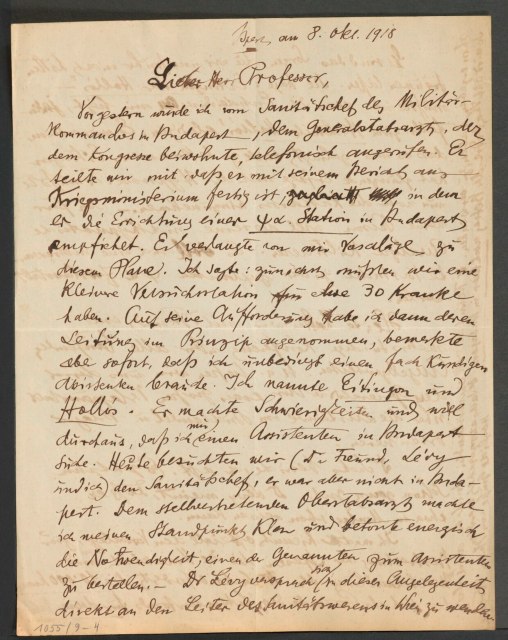 Bpest, am 8. Okt. 1918
Lieber Herr Professor,
Vorgestern wurde ich vom Sanitätschef des Militär-
Kommandos in Budapest, dem Generalstabsarzt, der
dem Kongresse beiwohnte, telefonisch angerufen. Er
teilte mir mit daß er mit seinem Bericht ans
Kriegsministerium fertig ist, in dem
er die Errichtung einer ψα. Station in Budapest
empfiehlt. Er verlangte von mir Vorschläge zu
diesem Plane. Ich sagte: zunächst müßten wir eine
kleinere Versuchsstation für etwa 30 Kranke
haben. Auf seine Aufforderung habe ich dann deren
Leitung im Prinzip angenommen, bemerkte
aber sofort, daß ich unbedingt einen fachkundigen
Assistenten brauche. Ich nannte Eitingon und
Hollós. Er machte Schwierigkeiten und will
durchaus, daß ich mir einen Assistenten in Budapest
suche. Heute besuchten wir (Dr Freund, Lévy
und ich) den Sanitätschef, er war aber nicht in Buda-
pest. Dem stellvertretenden Oberstabsarzt machte
ich meinen Standpunkt klar und betonte energisch
die Notwendigkeit, einen der Genannten zum Assistenten
zu bestellen. – Dr Lévy versprach sich in dieser Angelegenheit
direkt an den Leiter des Sanitätswesens in Wien zu wenden.
1055/9-4